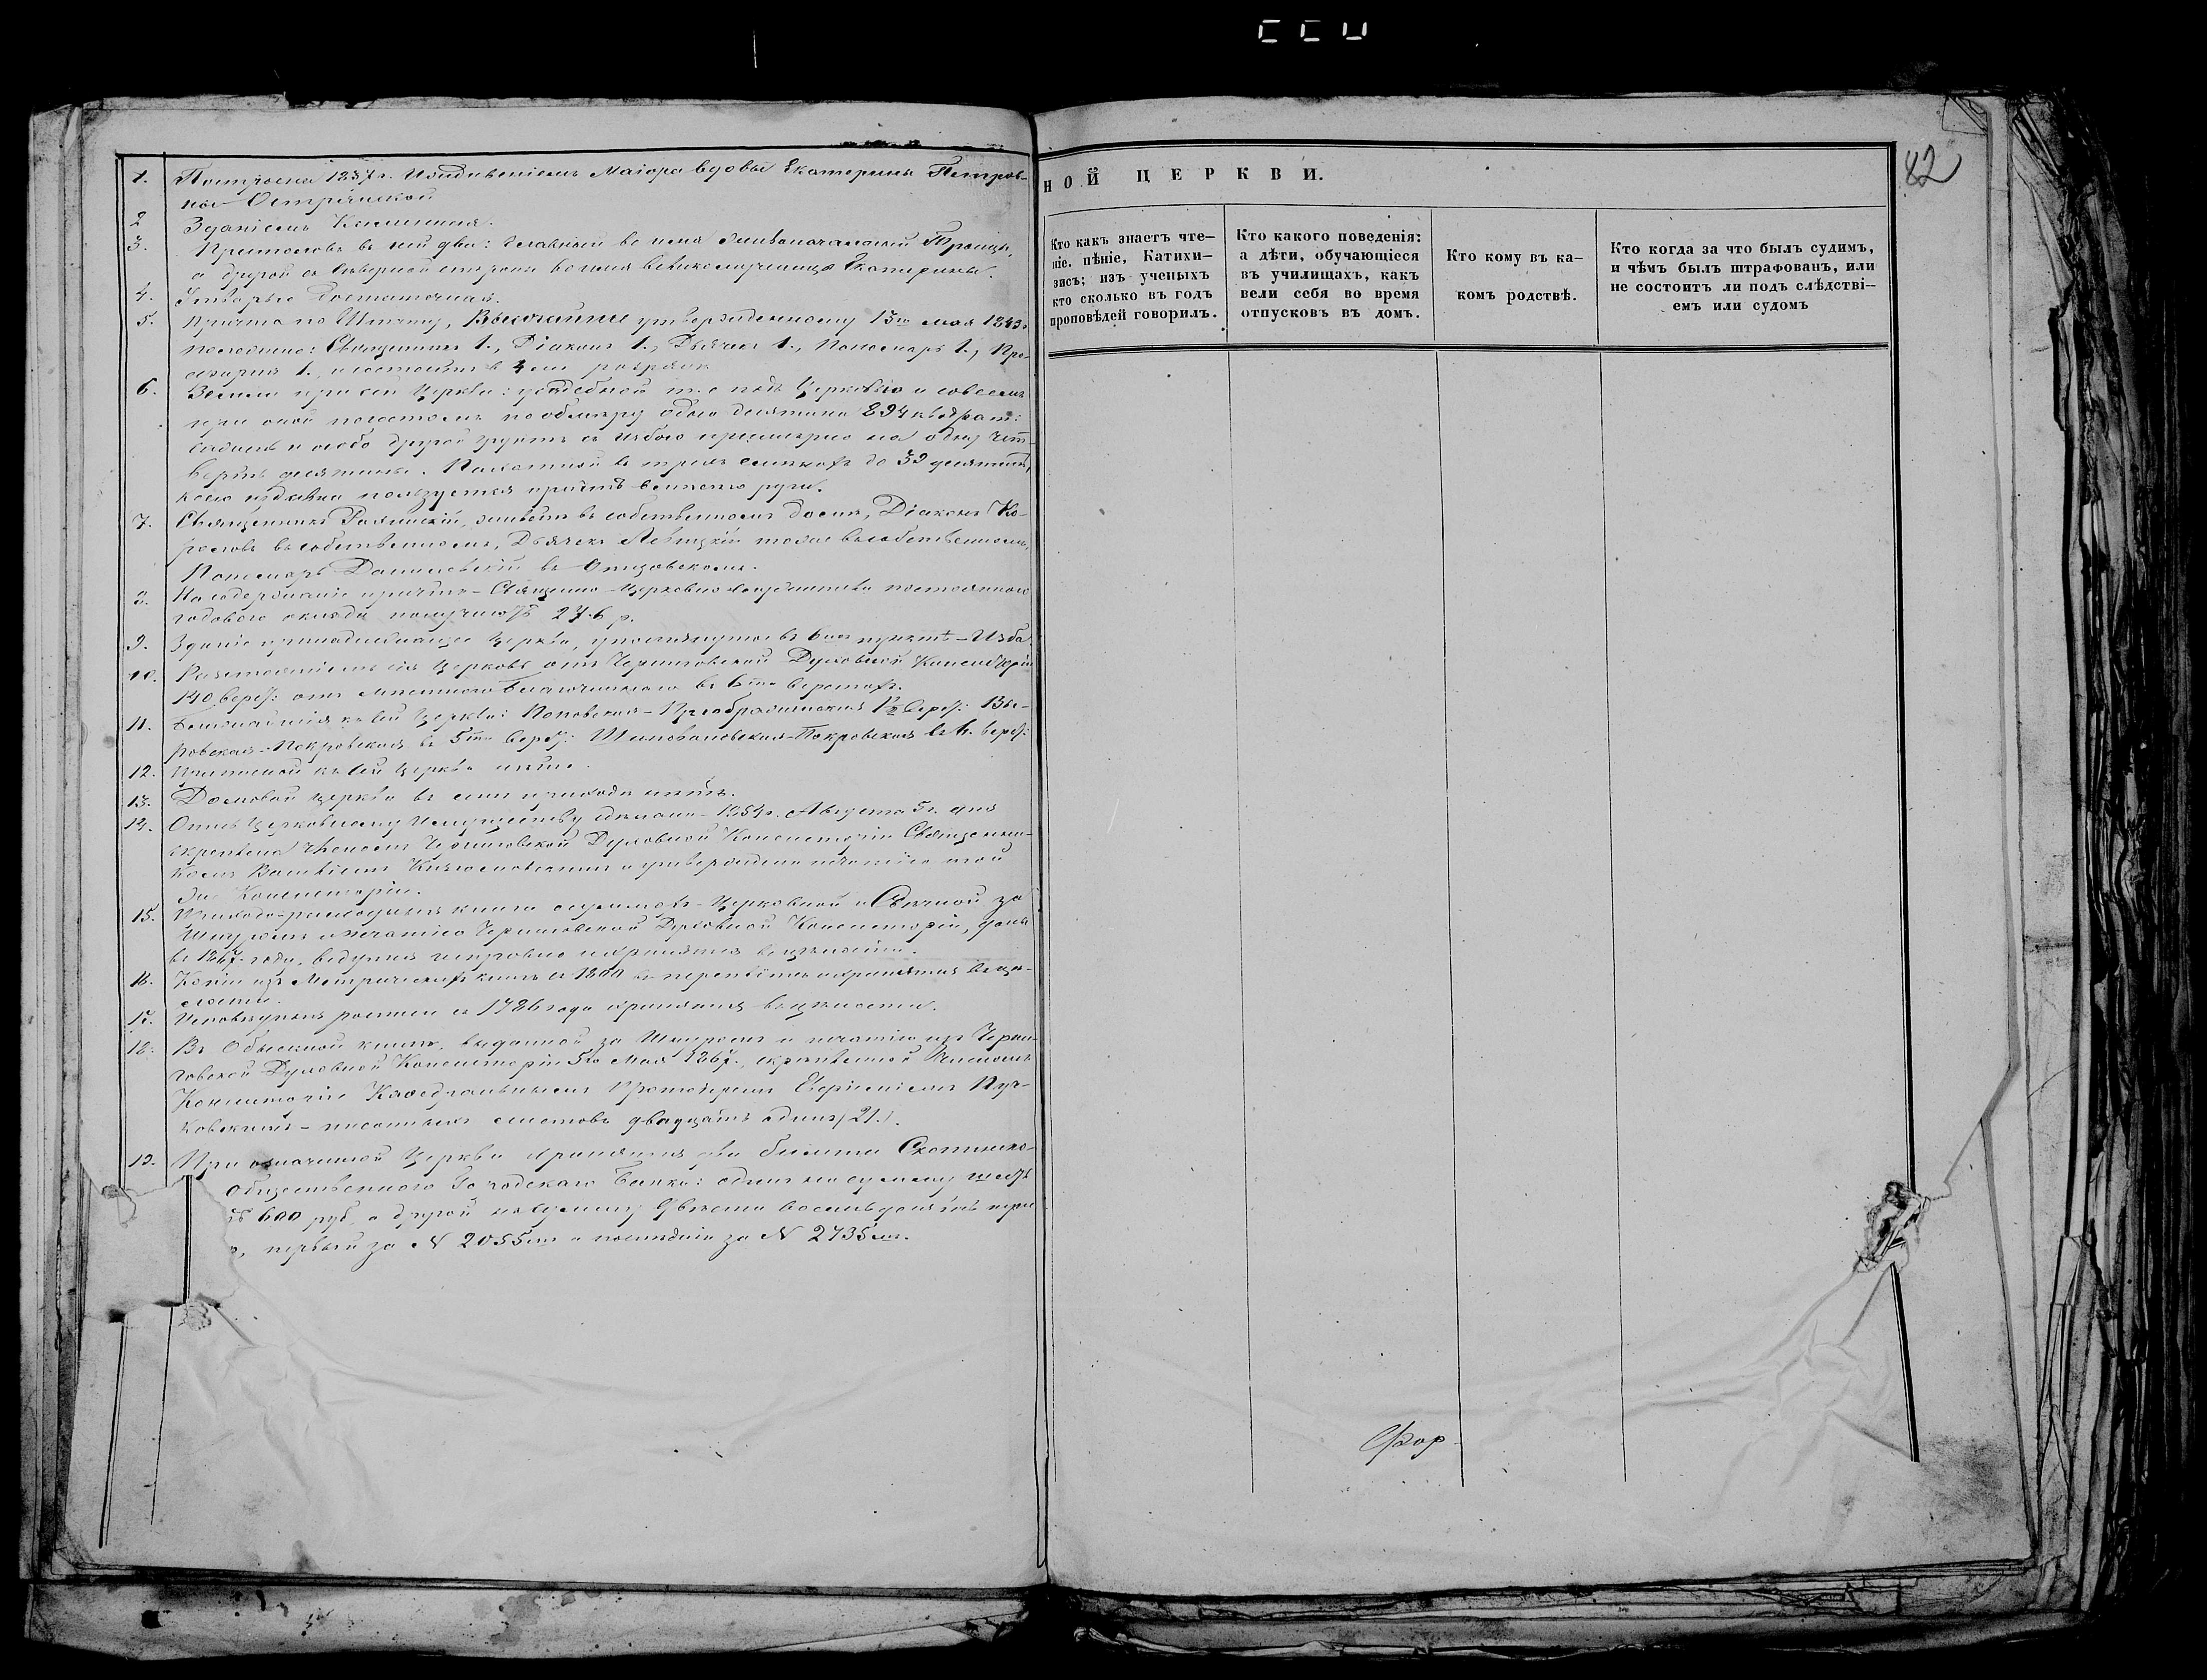 1. Построена 1837 г. Иждивеніемъ Маіора вдовы Екатерины Петров-
ны
2 Зданіемъ Каменная.
3. Престоловъ въ ней два: главный во имя Живоначальной Троицы,
а другой съ сѣверной стороны во имя великомученицы Екатерины.
4. Утварью достаточна.
5. Причта по Штату, Высочайше утвержденному 1843
положено: Священникъ 1., Діаконъ 1., Дьячек 1., Пономарь 1., Про-
сфирня 1., и состоитъ в 4 ем разрядѣ
6. Земли при сей Церкви: усадебной т. е. подъ Церковію и совсемъ
при оной погостомъ по обмѣру одна десятина 894 квадрат:
сажень и особо другой грунтъ съ избою примѣрно на одну чет-
верть десятины. Пахатной въ трехъ смѣнахъ до 32 десятинъ,
коею издавна пользуется причтъ
7. Священникъ живетъ въ собственномъ домѣ, Діаконъ
въ собственномъ, Дьячекъ Левицкій тоже въ собственномъ,
Пономарь Данилевскій въ
8. На содержаніе причта Священно-Церковно-служители постояннаго
годового оклада получаютъ 276 р.
9. Зданіе принадлежащее Церкви, упомянутое въ 6 мъ пунктѣ – Изба
10. Разстояніемъ сія Церковь отъ Черниговской Духовной Консисторіи
140 верс: отъ мѣстнаго Благочиннаго въ верстахъ.
11. Ближайшія къ сей Церкви: Поповская – Преображенская верс:
Покровская въ 5 ти верс: Покровская въ верс:
12. Приписной къ сей Церкви нѣтъ.
13. Домовой церкви въ семъ приходѣ нѣтъ.
14. Опись Церковному Имуществу сдѣлана 1854 г. Августа 5 г. дня
скрѣплена Членомъ Черниговской Духовной Консисторіи Священни-
комъ и утверждена печатію той
же Консисторіи.
15. Приходо-расходныя книги суммамъ Церковной и Свѣчной за
Шнуромъ и печатію Черниговской Духовной Консисторіи, даны
въ 1867 году, ведутся исправно и хранятся въ цѣлости.
16. Копіи изъ Метрическихъ книгъ съ 1800 въ переплетѣ хранятся въ цѣ-
лости.
17. Исповѣдныя росписи съ 1786 года хранятся въ цѣлости.
18. Въ Обыскной книгѣ, выданной за Шнуромъ и печатію изъ Черни-
говской Духовной Консисторіи 5 го Мая 1867., скрѣпленной Членомъ
Консисторіи Кафедральнымъ Протоіереемъ Евфиміемъ
писанныхъ листовъ двадцать одинъ (21.).
19. При означенной Церкви хранятся два билета
Общественнаго Городскаго Банка: одинъ на сумму шесть
600 руб, а другой на сумму двѣсти восемьдесятъ
первый за N 2055 мъ а послѣдній за N 2735 мъ.
82
НОЙ ЦЕРКВИ.
Кто какъ знаетъ чте-
ніе, пѣніе, Катихи-
зисъ; изъ ученыхъ
кто сколько въ годъ
проповѣдей говорилъ.
Кто какого поведенія:
а дѣти, обучающіеся
въ училищахъ, какъ
вели себя во время
отпусковъ въ домъ.
Кто кому въ ка-
комъ родствѣ.
Кто когда за что былъ судимъ,
и чѣмъ былъ штрафованъ, или
не состоитъ ли подъ слѣдстві-
емъ или судомъ